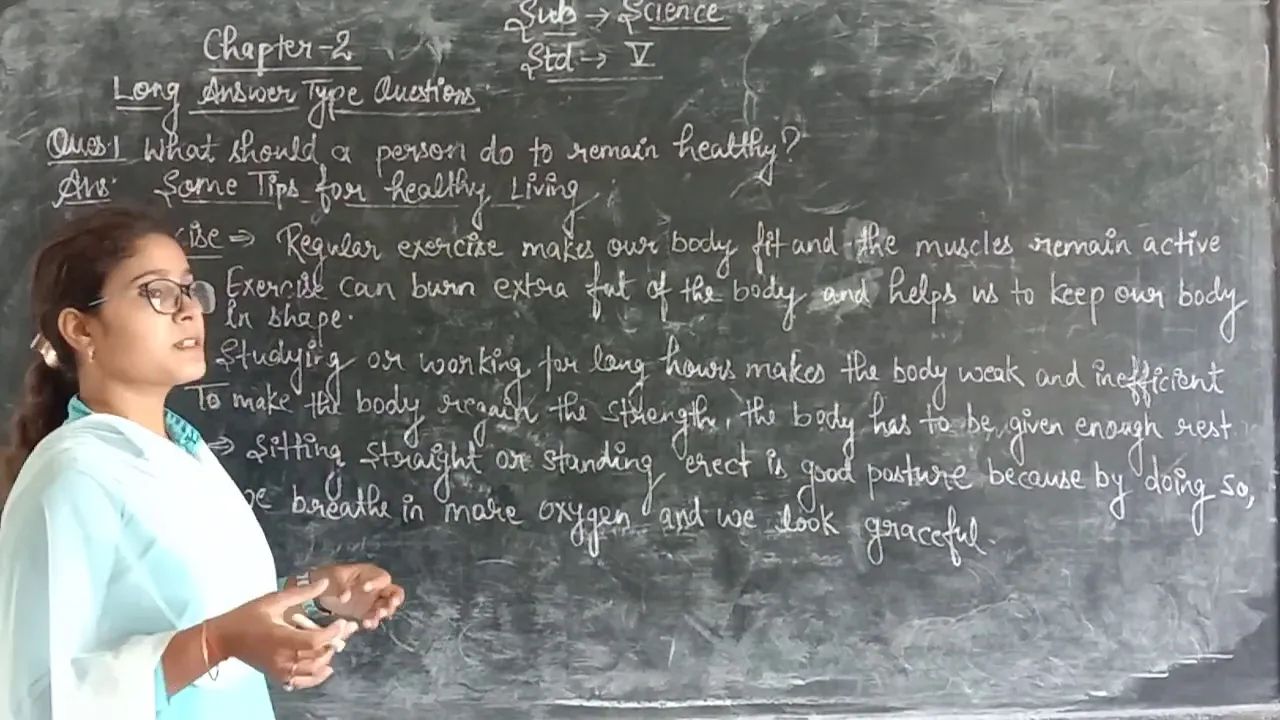 Sub → Science
Std → V
Chapter-2
Long Answer Type Questions
Ques:1 What should a person do to remain healthy?
Ans: Some Tips for healthy Living
cise ⇒ Regular exercise makes our body fit and the muscles remain active
Exercise can burn extra fat of the body and helps us to keep our body
in shape.
Studying or working for long hours makes the body weak and inefficient
To make the body regain the strength, the body has to be given enough rest
⇒ Sitting straight or standing erect is good posture because by doing so,
breathe in more oxygen and we look graceful.